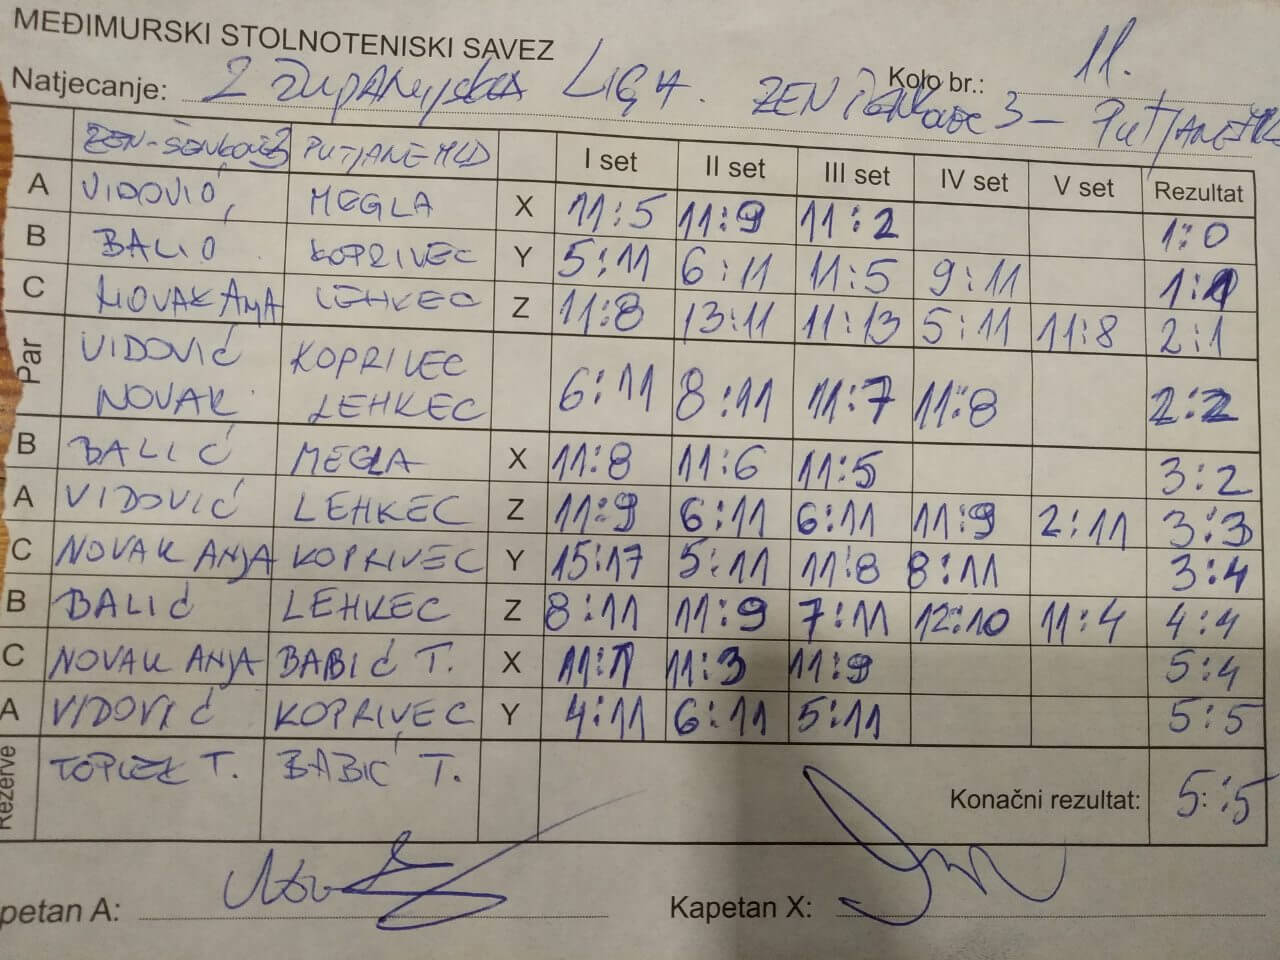 MEĐIMURSKI STOLNOTENISKI SAVEZ
Natjecanje: 2 ŽUPANIJSKA LIGA. Kolo br.: 11.
ZEN ŠENKOVEC 3 – PUTJANE MLD
ZEN-ŠENKOVEC 3 PUTJANE MLD I set II set III set IV set V set Rezultat
A VIDOVIĆ, MEGLA X 11:5 11:9 11:2 1:0
B BALIĆ KOPRIVEC Y 5:11 6:11 11:5 9:11 1:1
C NOVAK ANJA LEHKEC Z 11:8 13:11 11:13 5:11 11:8 2:1
Par VIDOVIĆ KOPRIVEC
NOVAK LEHKEC 6:11 8:11 11:7 11:8 2:2
B BALIĆ MEGLA X 11:8 11:6 11:5 3:2
A VIDOVIĆ LEHKEC Z 11:9 6:11 6:11 11:9 2:11 3:3
C NOVAK ANJA KOPRIVEC Y 15:17 5:11 11:8 8:11 3:4
B BALIĆ LEHKEC Z 8:11 11:9 7:11 12:10 11:4 4:4
C NOVAK ANJA BABIĆ T. X 11:7 11:3 11:9 5:4
A VIDOVIĆ KOPRIVEC Y 4:11 6:11 5:11 5:5
Rezerve TOPLEK T. BABIĆ T. Konačni rezultat: 5:5
petan A: Kapetan X: